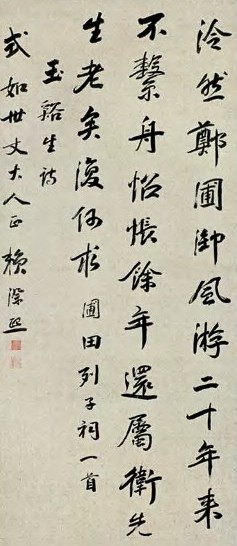 泠然鄭圃御風游二十年来
不繫舟怡悵餘年還屬衛先
生老矣復何求 圃田列子祠一首
玉谿生詩
式如世丈大人正 賴深熙